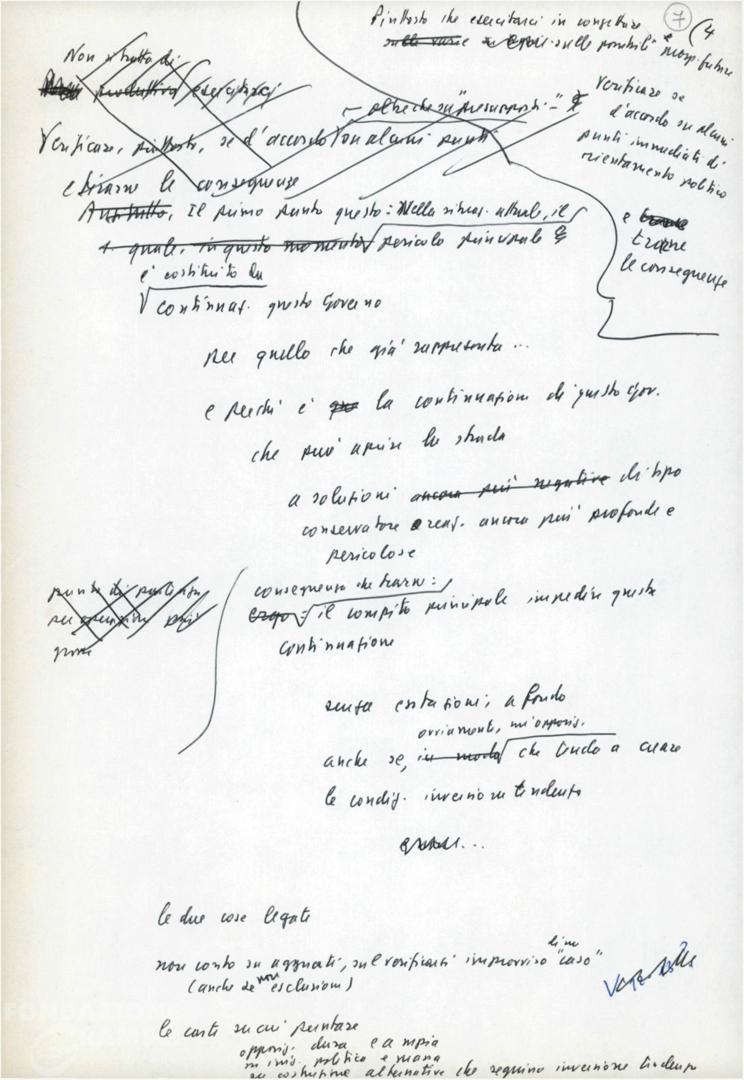 7 (4
Piuttosto che esercitarci in congetture
sulle varie sulle possibili e prosp. future
Non si tratta di
esercitarci
— oltre che su "presupposti" —
Verificare, piuttosto, se d'accordo su alcuni punti
e tirarne le conseguenze
Verificare se
d'accordo su alcuni
punti immediati di
orientamento politico
e
trarne
le conseguenze
Anzitutto, Il primo punto questo: Nella situaz. attuale, il
quale, in questo momento pericolo principale è
è costituito da
continuaz. questo Governo
per quello che già rappresenta...
e perché è la continuazione di questo Gov.
che può aprire la strada
a soluzioni ancora più negative di tipo
conservatore e reaz. ancora più profonde e
pericolose
punto di partenza
per operazioni più
conseguenza da trarne:
ergo: il compito principale impedire questa
continuazione
senza esitazioni, a fondo
ovviamente, un'opposiz.
anche se, in modo che tenda a creare
le condiz. inversione tendenza
le due cose legate
non conto su agguati, sul verificarsi improvviso di un "caso"
(anche se non esclusioni)
le carte su cui puntare
opposiz. dura e ampia
su iniz. politica e
su costruzione alternative che segnino inversione tendenza
FONDAZIONE